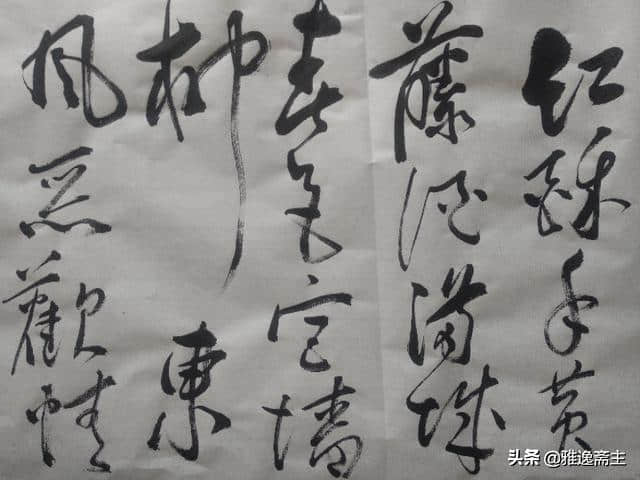 红酥手黄
藤酒满城
春色宫墙
柳東
风恶歡情
头条 @雅逸斋主